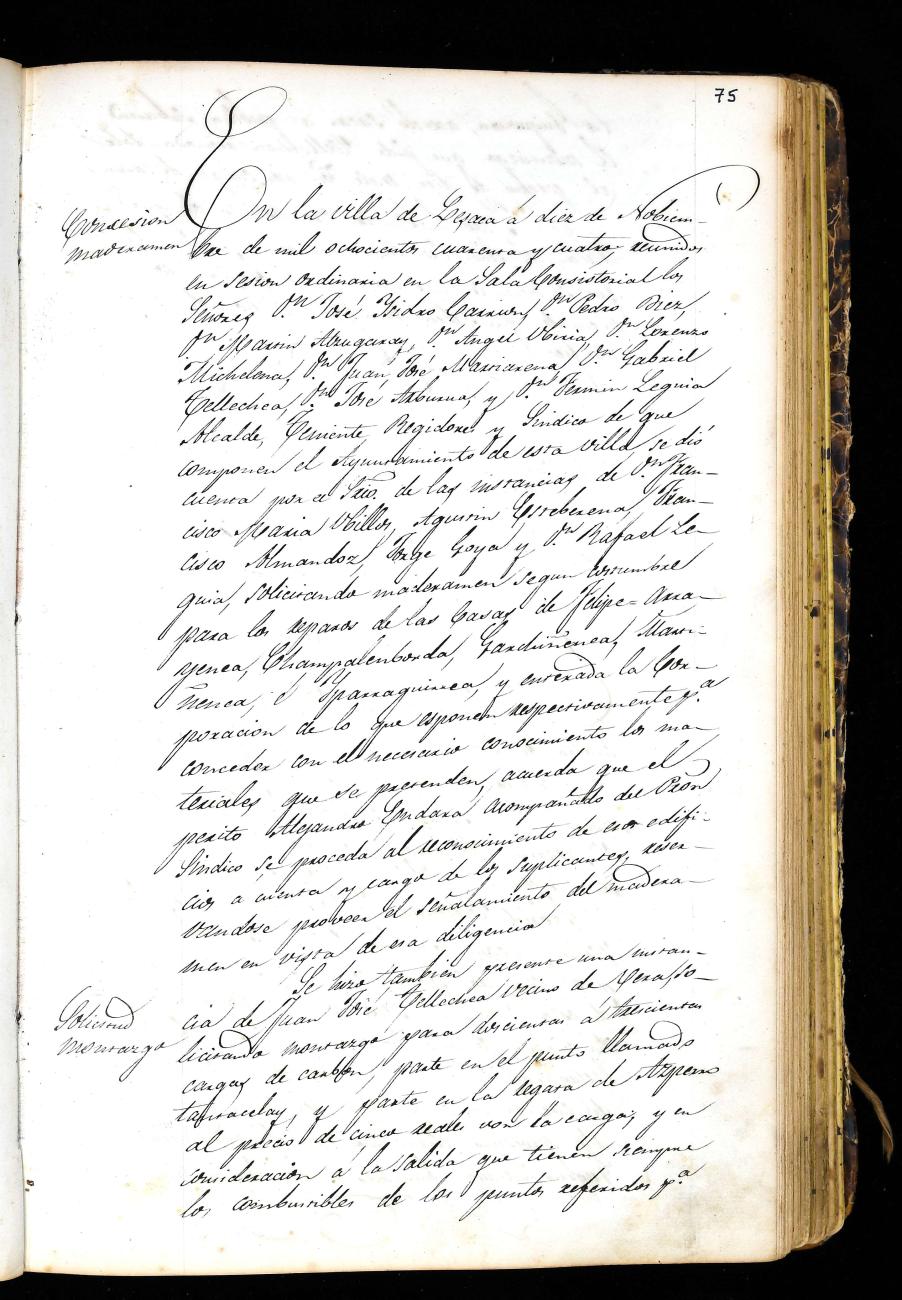 75
Concesion
maderamen
En la villa de Lesaca á diez de Nobiem-
bre de mil ochocientos cuarenta y cuatro, reunidos
en sesion ordinaria en la Sala Consistorial los
Señores Dn. José Ysidro Carrion, Dn. Pedro Diez,
Dn. Martin Alzugaray, Dn. Angel Obiria, Dn. Lorenzo
Michelena, Dn. Juan José Marriarena, Dn. Gabriel
Tellechea, Dn. José Arburua, y Dn. Fermin Leguia
Alcalde, Teniente, Regidores y Sindico de que
componen el Ayuntamiento de esta Villa, se dió
cuenta por el Srio. de las instancias de Dn. Fran-
cisco Maria Ubillos, Agustin Esteberena, Fran-
cisco Almandoz, Jorge Goya y Dn. Rafael Le-
guia, solicitando maderamen segun costumbre
para los reparos de las Casas de Felipe-Arra-
yenea, Champalenborda, Garduñenea, Marti-
ñenea, é Yparraguirrea, y enterada la Cor-
poracion de lo que esponen respectivamente pa.
conceder con el necesario conocimiento los ma-
teriales que se pretenden, acuerda que el
perito Alejandro Endara acompañado del Pror.
Sindico se proceda al reconocimiento de esos edifi-
cios a cuenta y cargo de los suplicantes, reser-
vandose proveer el señalamiento del madera-
men en vista de esa diligencia
Solicitud
montazgo
Se hizo tambien presente una instan-
cia de Juan José Tellechea vecino de Vera so-
licitando montazgo para doscientas á trescientas
cargas de carbon, parte en el punto llamado
tanracelay, y parte en la regata de Azpero
al precio de cinco reales von la carga; y en
consideracion á la salida que tienen siempre
los combustibles de los puntos referidos pa.